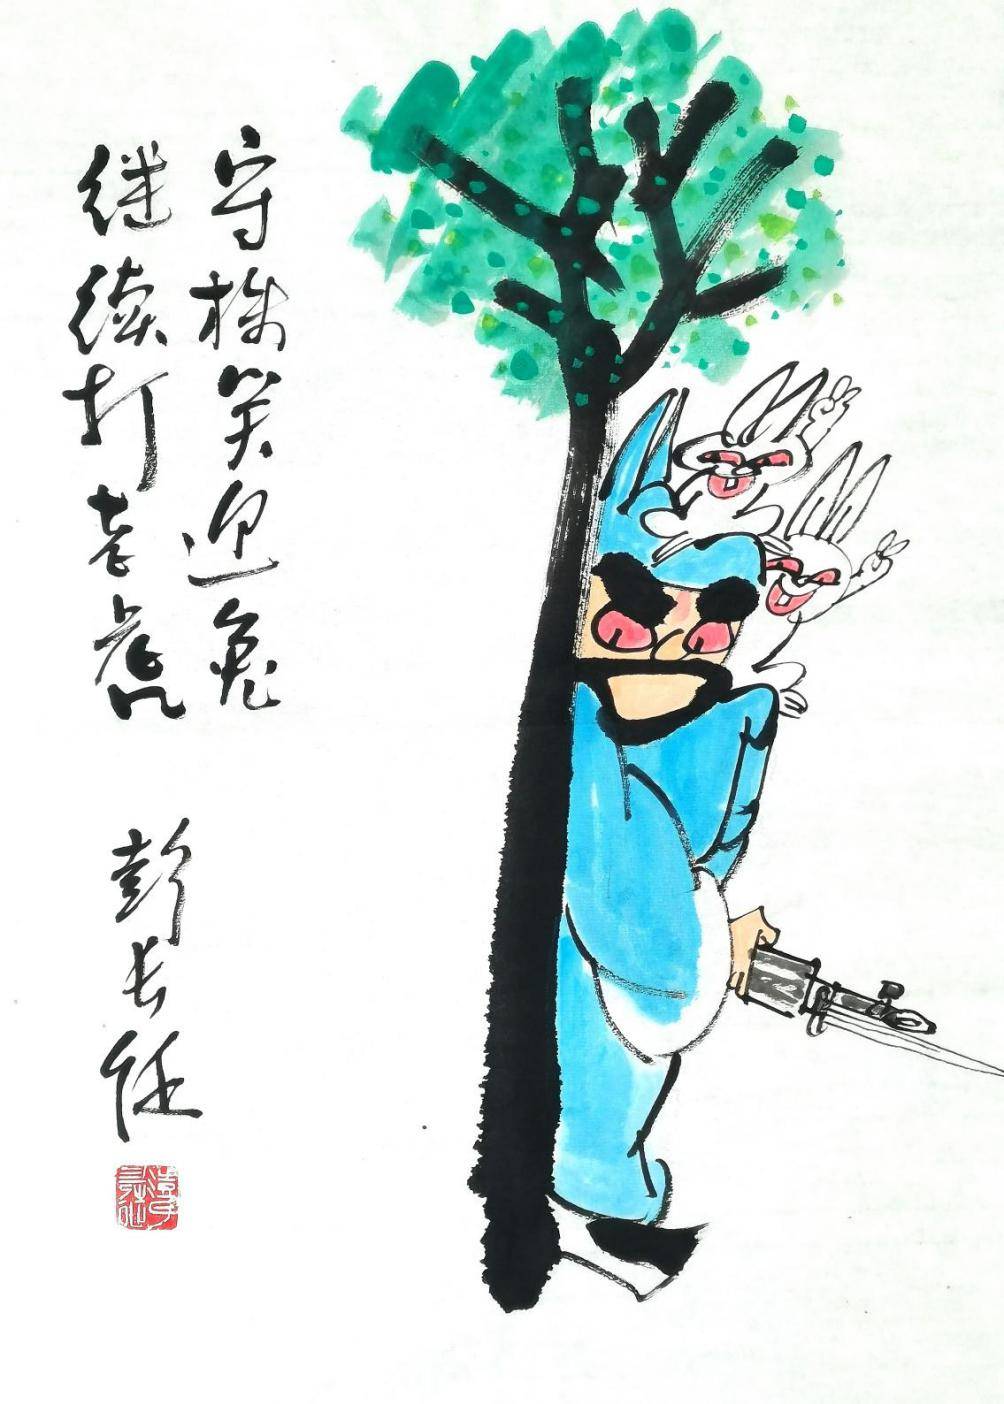 守株笑迎兔
继续打老虎
彭长征